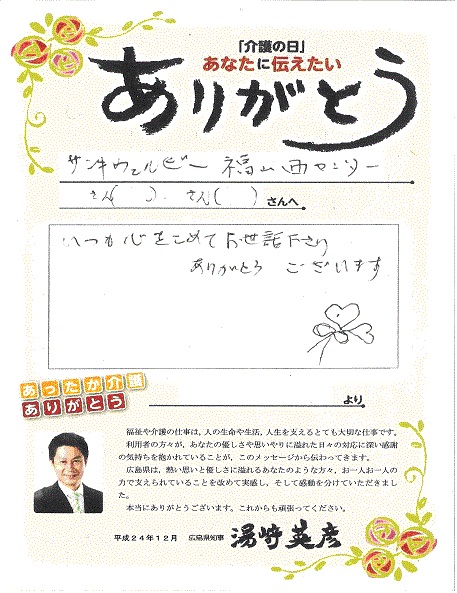 「介護の日」
あなたに伝えたい
ありがとう
サンキウエルビー 福山西センター
さん( )、さん( ) さんへ
いつも心をこめてお世話下さり
ありがとう ございます
あったか介護
ありがとう
より
福祉や介護の仕事は、人の生命や生活、人生を支えるとても大切な仕事です。
利用者の方々が、あなたの優しさや思いやりに溢れた日々の対応に深い感謝
の気持ちを抱かれていることが、このメッセージから伝わってきます。
広島県は、熱い思いと優しさに溢れるあなたのような方々、お一人お一人の
力で支えられていることを改めて実感し、そして感動を分けていただきまし
た。
本当にありがとうございます。これからも頑張ってください。
平成24年12月 広島県知事 湯﨑英彦